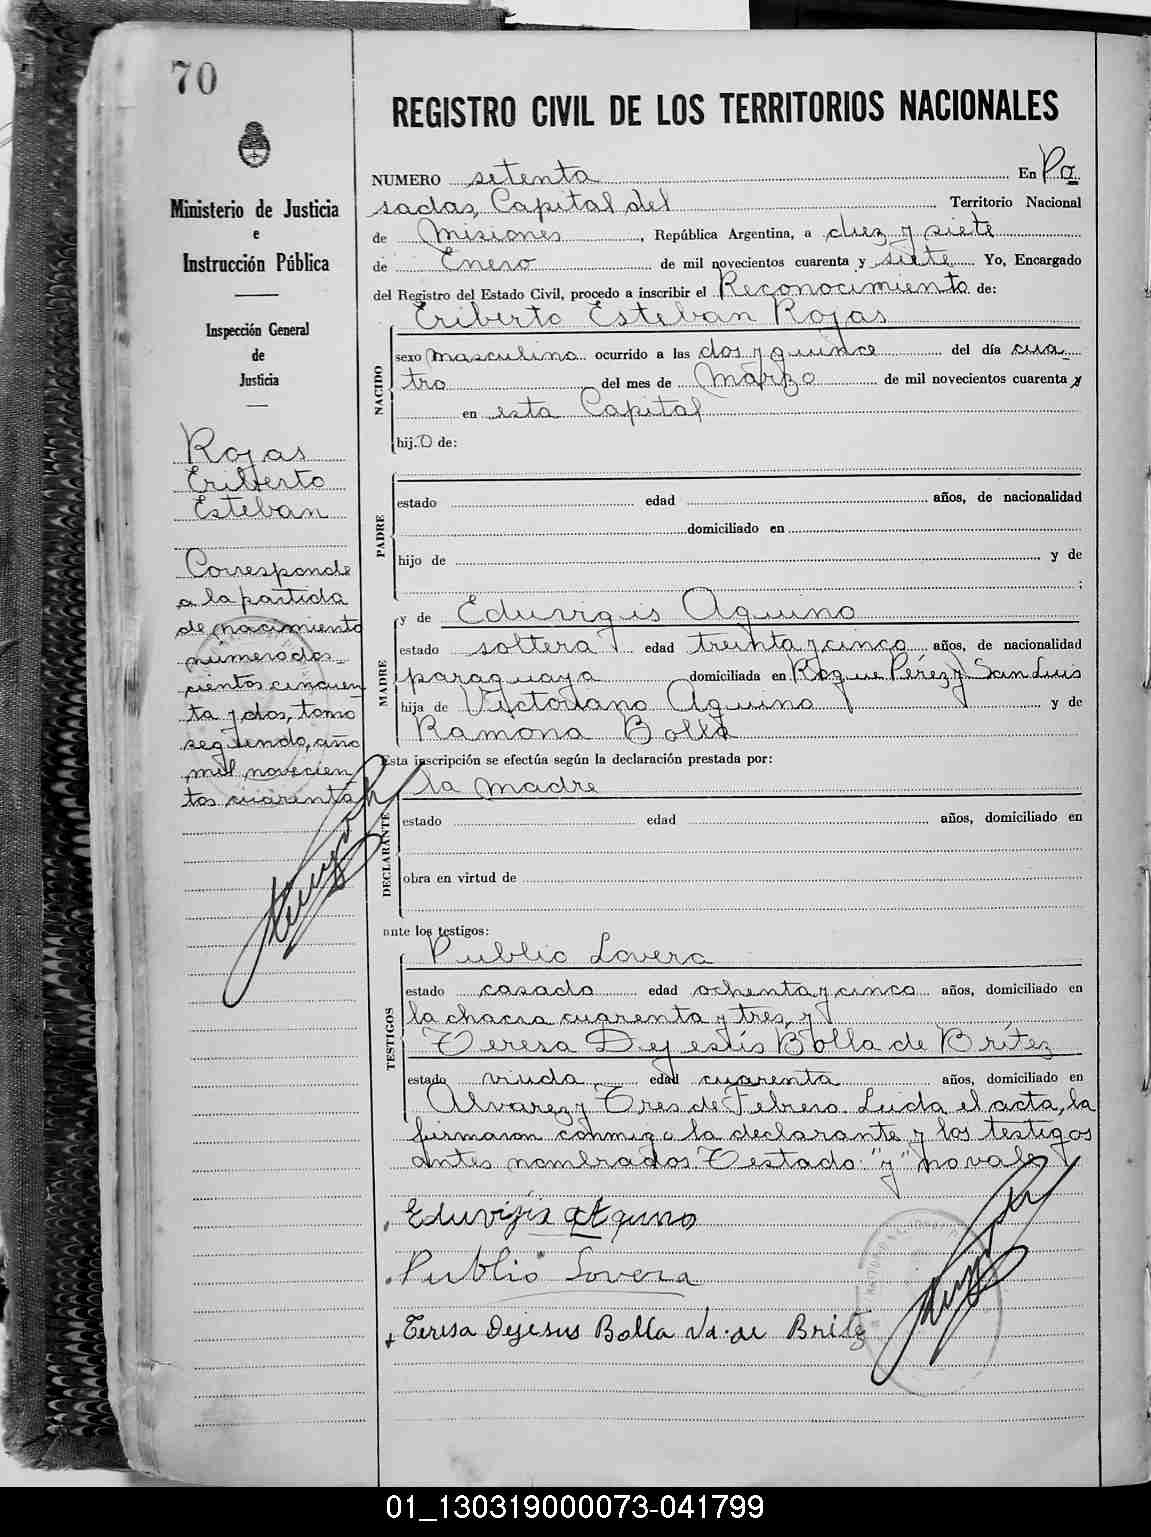 70
Ministerio de Justicia
e
Instrucción Pública
Inspección General
de
Justicia
Rojas
Eriberto
Esteban
Corresponde
a la partida
de nacimiento
número dos-
cientos cincuen
ta y dos, tomo
segundo, año
mil novecien
tos cuarenta
REGISTRO CIVIL DE LOS TERRITORIOS NACIONALES
NUMERO setenta En Po
sadas, Capital del Territorio Nacional
de Misiones, República Argentina, a diez y siete
de Enero de mil novecientos cuarenta y siete Yo, Encargado
del Registro del Estado Civil, procedo a inscribir el Reconocimiento de:
Eriberto Esteban Rojas
NACIDO
sexo masculino ocurrido a las dos y quince del día cua-
tro del mes de Marzo de mil novecientos cuarenta y
en esta Capital
hij.o de:
PADRE
estado edad años, de nacionalidad
domiciliado en
hijo de y de
;
MADRE
y de Eduvigis Aquino
estado soltera edad treinta y cinco años, de nacionalidad
paraguaya domiciliada en Roque Pérez y San Luis
hija de Victoriano Aquino y de
Ramona Bolla
Esta inscripción se efectúa según la declaración prestada por:
la madre
DECLARANTE
estado edad años, domiciliado en
obra en virtud de
ante los testigos:
Publio Lovera
TESTIGOS
estado casado edad ochenta y cinco años, domiciliado en
la chacra cuarenta y tres, y
Teresa Dejesús Bolla de Brítez
estado viuda edad cuarenta años, domiciliado en
Alvarez y Tres de Febrero. Leida el acta, la
firmaron conmigo la declarante y los testigos
antes nombrados. Testado: "y" no vale
Eduvijis Aquino
Publio Lovera
Teresa Dejesus Bolla Vd. de Britez
01_130319000073-041799